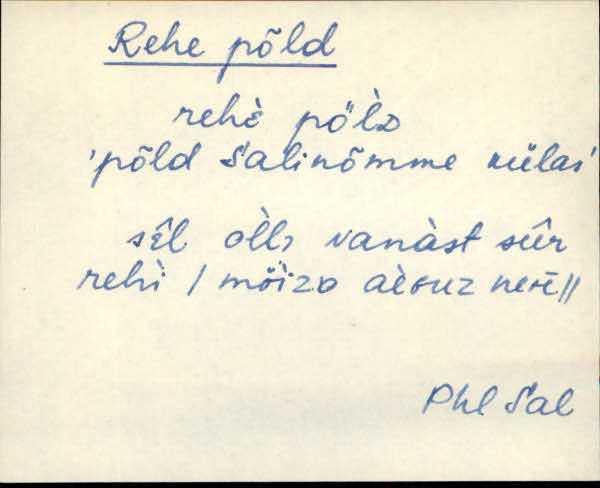 Rehe põld
rehè pö̀lᴅ
'põld Salinõmme külas'
sêl òlʟ vanàst sûr
rehì / mö̀izᴀ
Phl Sal